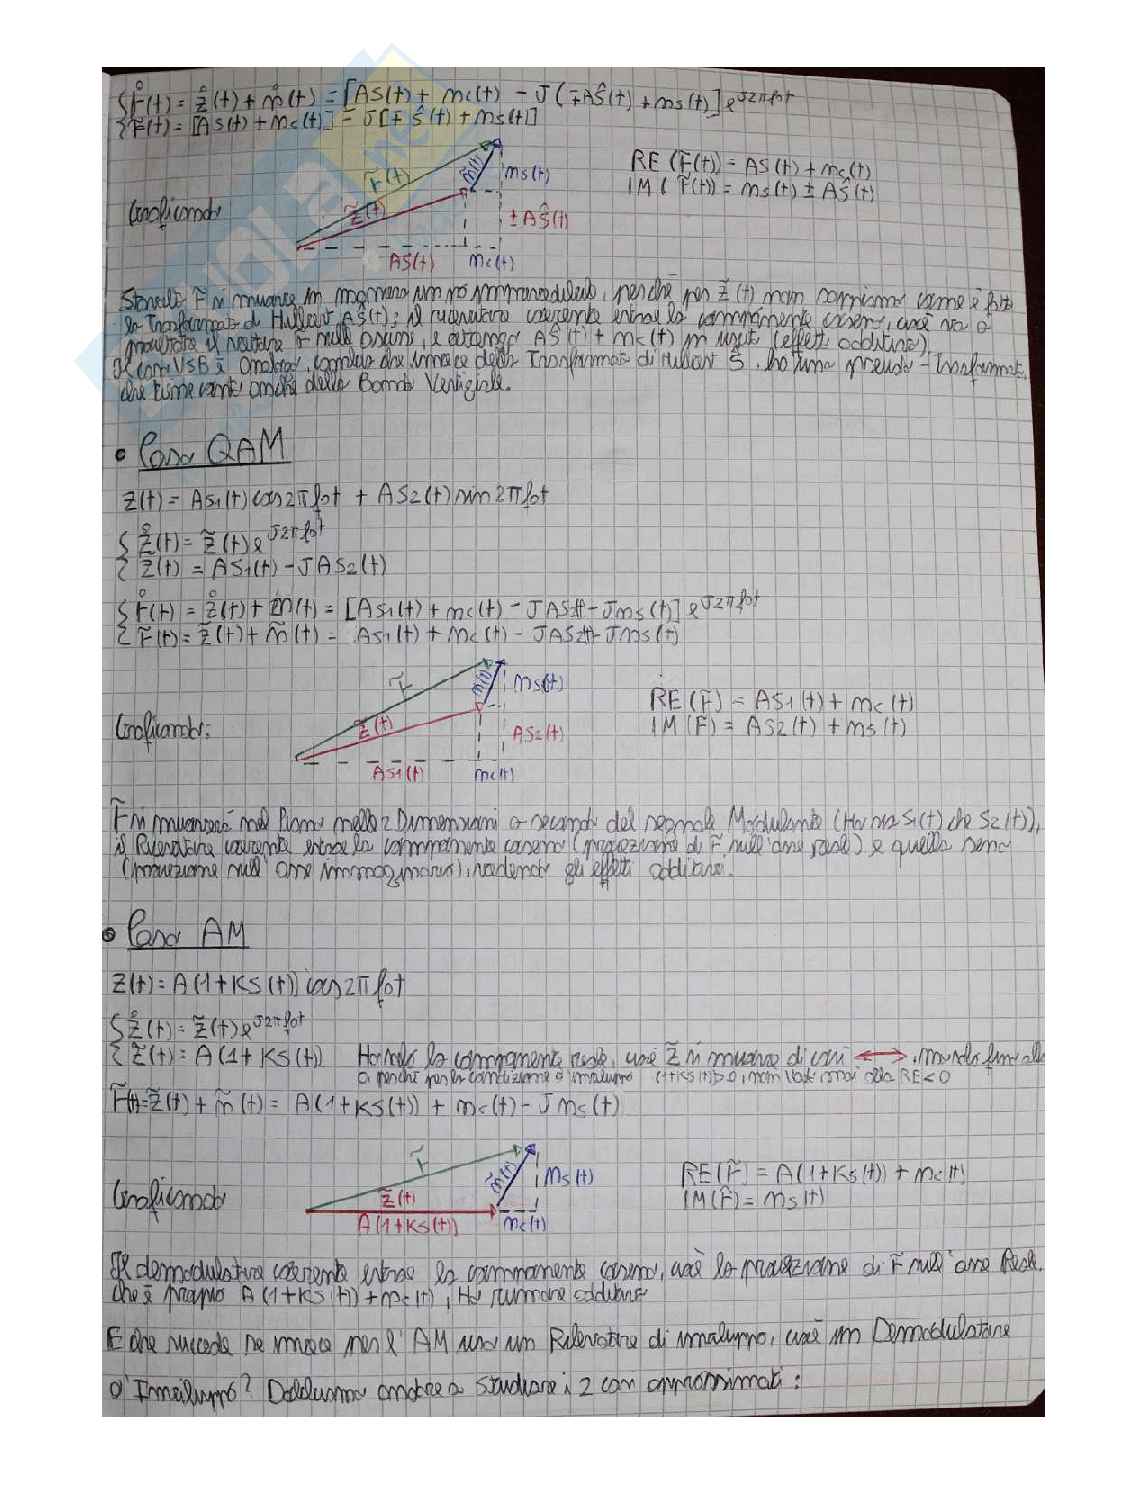 r̊(t) = z̊(t) + n̊(t) = [AS(t) + nc(t) - J(∓AŜ(t) + ns(t)] e^J2πfot
r̃(t) = [AS(t) + nc(t)] - J[∓Ŝ(t) + ns(t)]
RE(r̃(t)) = AS(t) + nc(t)
IM(r̃(t)) = ns(t) ± AŜ(t)
r̃(t)
ñ(t)
ns(t)
Graficando
z̃(t)
±AŜ(t)
AS(t)
nc(t)
r̃ si muove in maniera un po' imprevedibile, perché per z̃(t) non sappiamo come è fatta
la Trasformata di Hilbert AŜ(t); il rilevatore coerente estrae la componente coseno, cioè va a
proiettare il vettore r̃ sull'assi, e otteniamo AS(t) + nc(t) in uscita (effetti additivi).
Il caso VSB è analogo, cambia che invece della Trasformata di Hilbert Ŝ, ho una pseudo-trasformata,
che tiene conto anche della Banda Vestigiale.
• Caso QAM
z(t) = AS1(t) cos2πfot + AS2(t) sin2πfot
z̊(t) = z̃(t) e^J2πfot
z̃(t) = AS1(t) - JAS2(t)
r̊(t) = z̊(t) + n̊(t) = [AS1(t) + nc(t) - JAS2(t) - Jns(t)] e^J2πfot
r̃(t) = z̃(t) + ñ(t) = AS1(t) + nc(t) - JAS2(t) - Jns(t)
r̃
ñ(t)
ns(t)
RE(r̃) = AS1(t) + nc(t)
IM(r̃) = AS2(t) + ns(t)
Graficando:
z̃(t)
AS2(t)
AS1(t)
nc(t)
r̃ si muoverà nel Piano nelle 2 Dimensioni a seconda del segnale Modulante (Ho sia S1(t) che S2(t)),
il Rilevatore coerente estrae la componente coseno (proiezione di r̃ sull'asse reale) e quella seno
(proiezione sull'asse immaginario), vedendo gli effetti additivi.
• Caso AM
z(t) = A(1+KS(t)) cos2πfot
z̊(t) = z̃(t) e^J2πfot
z̃(t) = A(1+KS(t)) Ho solo la componente reale, cioè z̃ si muove di così ↔, man
o perché per la condizione di inviluppo (1+KS(t))>0, non vado mai alla RE<0
r̃(t) = z̃(t) + ñ(t) = A(1+KS(t)) + nc(t) - Jns(t)
r̃
ñ(t)
ns(t)
RE(r̃) = A(1+KS(t)) + nc(t)
IM(r̃) = ns(t)
Graficando
z̃(t)
A(1+KS(t))
nc(t)
Il demodulatore coerente estrae la componente coseno, cioè la proiezione di r̃ sull'asse Reale.
che è proprio A(1+KS(t)) + nc(t), Ho rumore additivo
E che succede se invece per l'AM uso un Rilevatore di inviluppo, cioè un Demodulatore
d'Inviluppo? Dobbiamo andare a Studiare i 2 casi approssimati: